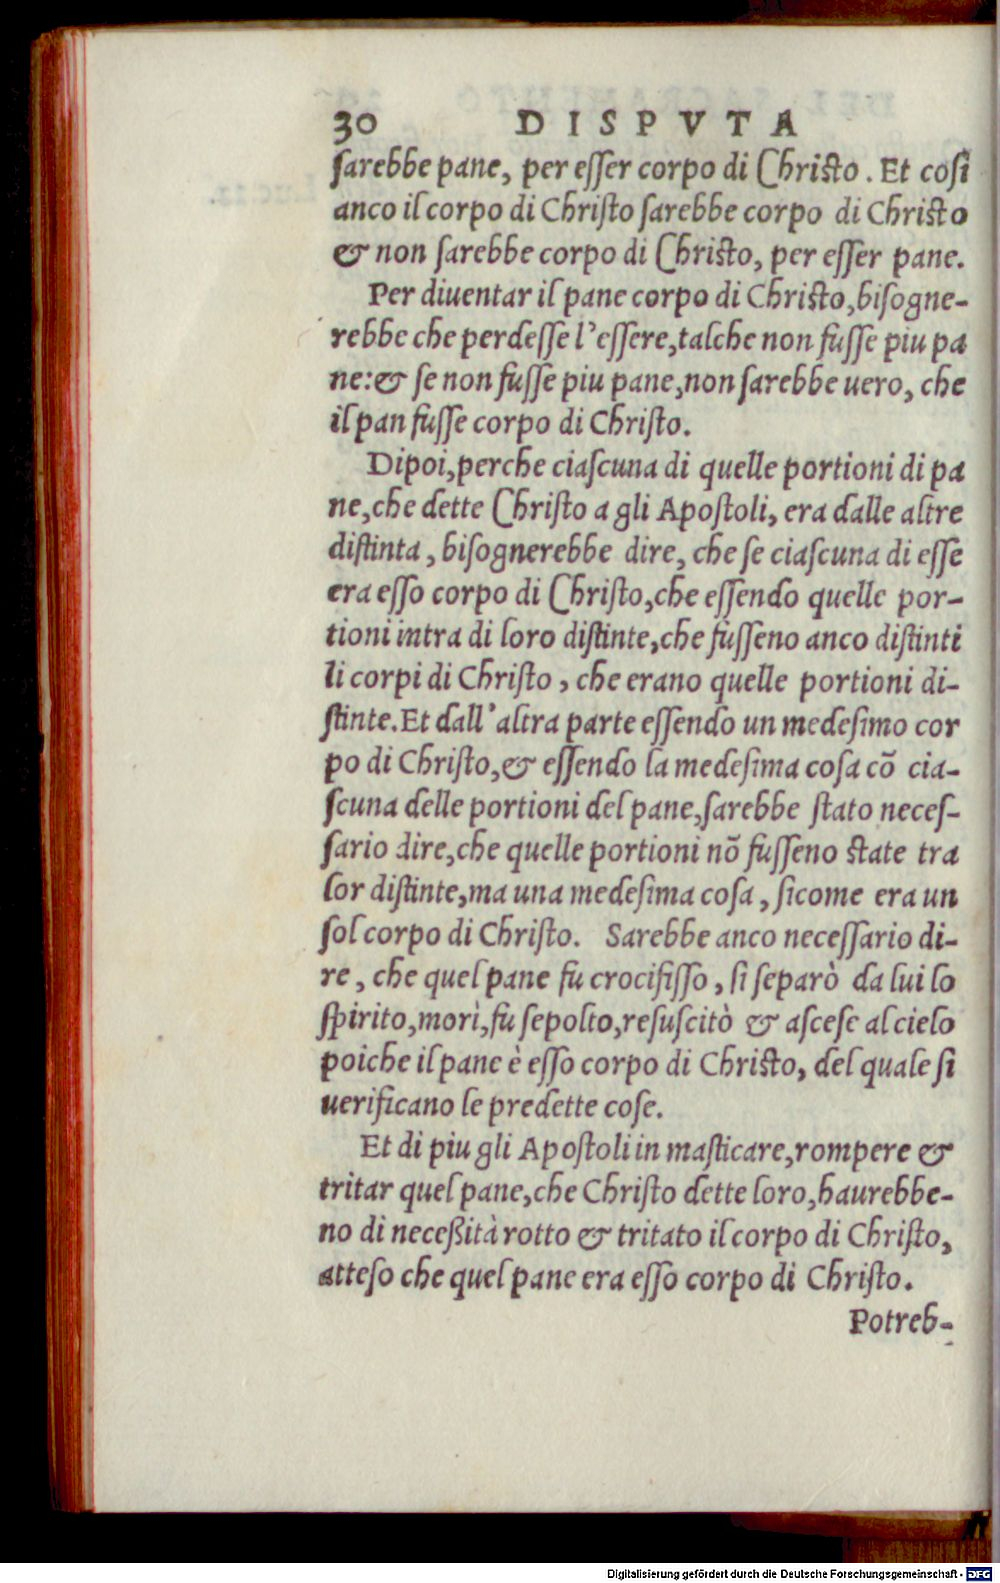 30 DISPVTA
ſarebbe pane, per eſſer corpo di Chriſto. Et coſi
anco il corpo di Chriſto ſarebbe corpo di Chriſto
& non ſarebbe corpo di Chriſto, per eſſer pane.
Per diuentar il pane corpo di Chriſto, biſogne-
rebbe che perdeſſe l'eſſere, talche non fuſſe piu pa
ne: & ſe non fuſſe piu pane, non ſarebbe uero, che
il pan fuſſe corpo di Chriſto.
Dipoi, perche ciaſcuna di quelle portioni di pa
ne, che dette Chriſto a gli Apoſtoli, era dalle altre
diſtinta, biſognerebbe dire, che ſe ciaſcuna di eſſe
era eſſo corpo di Chriſto, che eſſendo quelle por-
tioni intra di loro diſtinte, che fuſſeno anco diſtinti
li corpi di Chriſto, che erano quelle portioni di-
ſtinte. Et dall'altra parte eſſendo un medeſimo cor
po di Chriſto, & eſſendo la medeſima coſa cō cia-
ſcuna delle portioni del pane, ſarebbe ſtato neceſ-
ſario dire, che quelle portioni nō fuſſeno ſtate tra
lor diſtinte, ma una medeſima coſa, ſicome era un
ſol corpo di Chriſto. Sarebbe anco neceſſario di-
re, che quel pane fu crocifiſſo, ſi ſeparò da lui lo
ſpirito, morì, fu ſepolto, reſuſcitò & aſceſe al cielo
poiche il pane è eſſo corpo di Chriſto, del quale ſi
uerificano le predette coſe.
Et di piu gli Apoſtoli in maſticare, rompere &
tritar quel pane, che Chriſto dette loro, haurebbe-
no di neceßità rotto & tritato il corpo di Chriſto,
atteſo che quel pane era eſſo corpo di Chriſto.
Potreb-
Digitalisierung gefördert durch die Deutsche Forschungsgemeinschaft - DFG